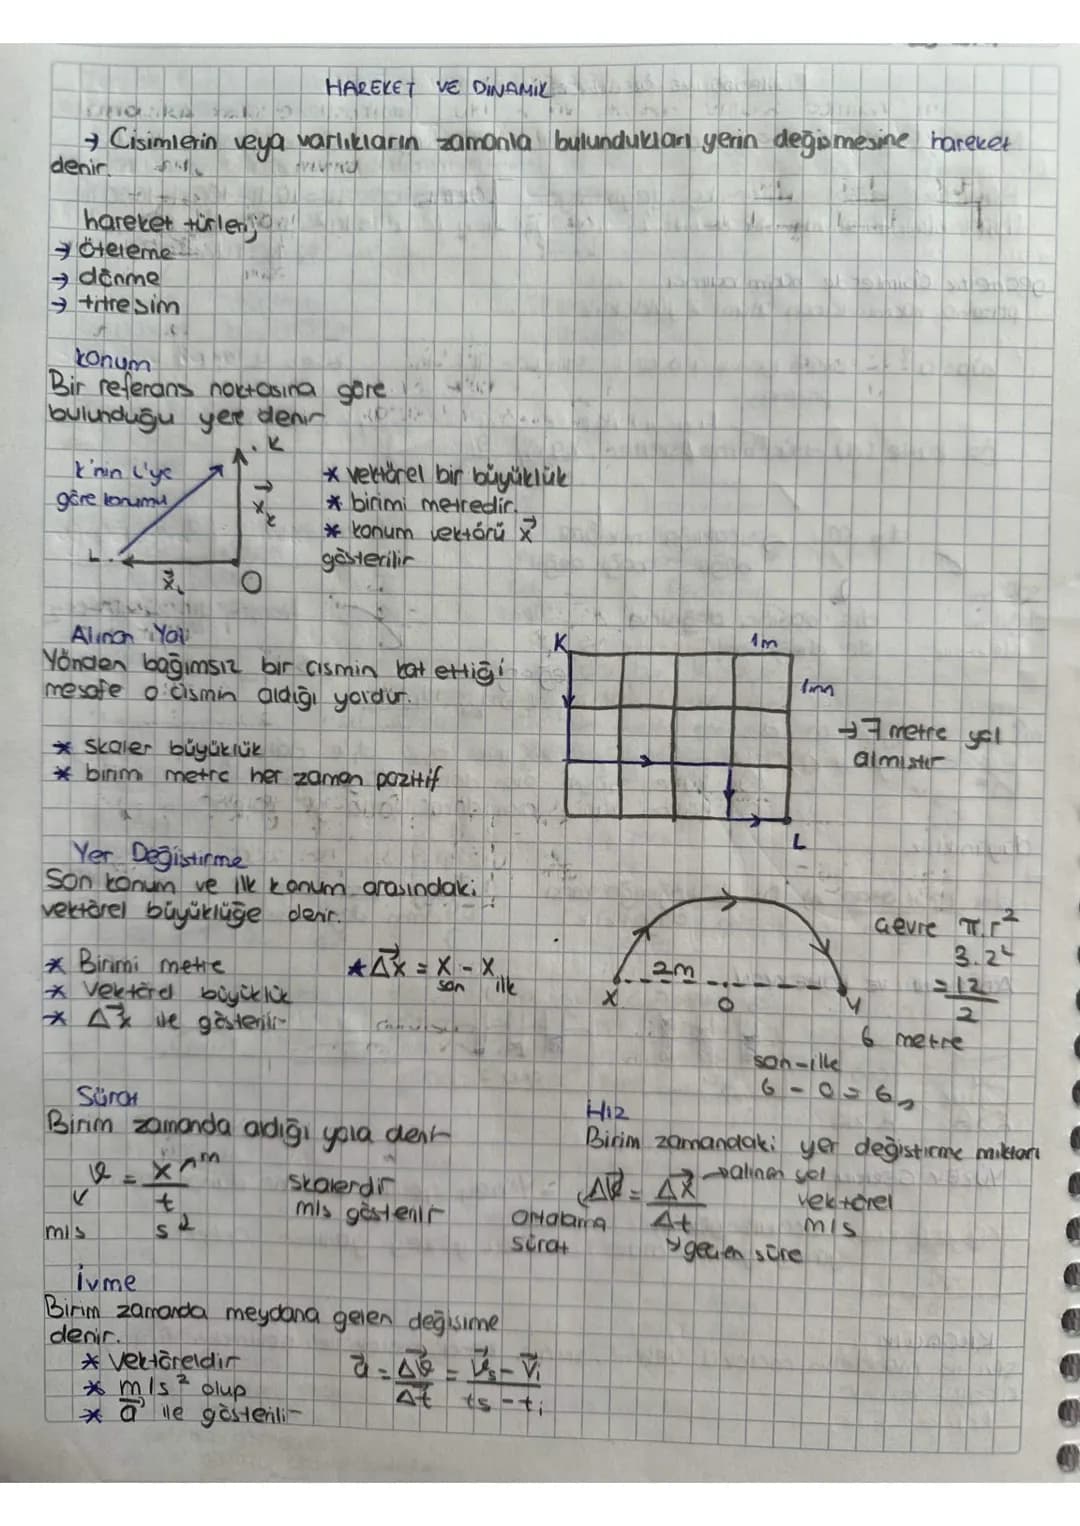 HAREKET VE DİNAMİK
→ Cisimlerin veya varlıkların zamanla bulundukları yerin değişmesine hareket
denir.
hareket türleri;
→ öteleme
→ dönme
→ titreşim
konum
Bir referans noktasına göre
bulunduğu yere denir
K
K'nin L'ye
göre konumu
x⃗ₖ
L
x⃗ʟ
O
* vektörel bir büyüklük
* birimi metredir.
* konum vektörü x⃗
gösterilir
Alınan Yol
Yönden bağımsız bir cismin kat ettiği
mesafe o cismin aldığı yoldur.
* skaler büyüklük
* birimi metre her zaman pozitif
K
1m
1m
→ 7 metre yol
almıştır
L
Yer Değiştirme
Son konum ve ilk konum arasındaki
vektörel büyüklüğe denir.
* Birimi metre
* Vektörel büyüklük
* Δx⃗ ile gösterilir
* Δx⃗ = x son - x ilk
2m
X
O
Y
çevre π.r²
3.2²
=12
2
6 metre
son-ilk
6 - 0 = 6
Sürat
Birim zamanda aldığı yola denir
v = x m
t
m/s
s
skalerdir
m/s gösterilir
Hız
Birim zamandaki yer değiştirme miktarı
Δv⃗ = Δx⃗ → alınan yol
Δt
geçen süre
Ortalama
sürat
vektörel
m/s
İvme
Birim zamanda meydana gelen değişime
denir.
* Vektöreldir
* m/s² olup
* a⃗ ile gösterilir
a⃗ = Δv⃗ = v⃗s - v⃗i
Δt ts - ti